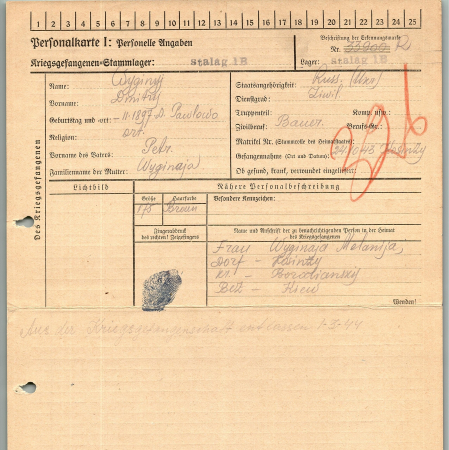 1 2 3 4 5 6 7 8 9 10 11 12 13 14 15 16 17 18 19 20 21 22 23 24 25
Personalkarte I: Personelle Angaben
Kriegsgefangenen-Stammlager: Stalag IB
Beschriftung der Erkennungsmarke
Nr. 33900 R
Lager: Stalag IB
Des Kriegsgefangenen
Name: Wyginyj
Vorname: Dmitrij
Geburtstag und -ort: -11.1897 Pawlowo
Religion: ort.
Vorname des Vaters: Petr.
Familienname der Mutter: Wyginaja
Staatsangehörigkeit: Russ. (Ukr)
Dienstgrad: Zivil.
Truppenteil: Komp. usw.:
Zivilberuf: Bauer. Berufs-Gr.:
Matrikel Nr. (Stammrolle des Heimatstaates):
Gefangennahme (Ort und Datum):
Ob gesund, krank, verwundet eingeliefert:
Lichtbild
Nähere Personalbeschreibung
Größe Haarfarbe
175 Braun
Besondere Kennzeichen:
Fingerabdruck
des rechten! Zeigefingers
Name und Anschrift der zu benachrichtigenden Person in der Heimat
des Kriegsgefangenen
Frau Wyginaja Melanija,
Dorf -
Borodianskij
Bez - Kiew
Wenden!
Aus der Kriegsgefangenschaft entlassen 1-3-44